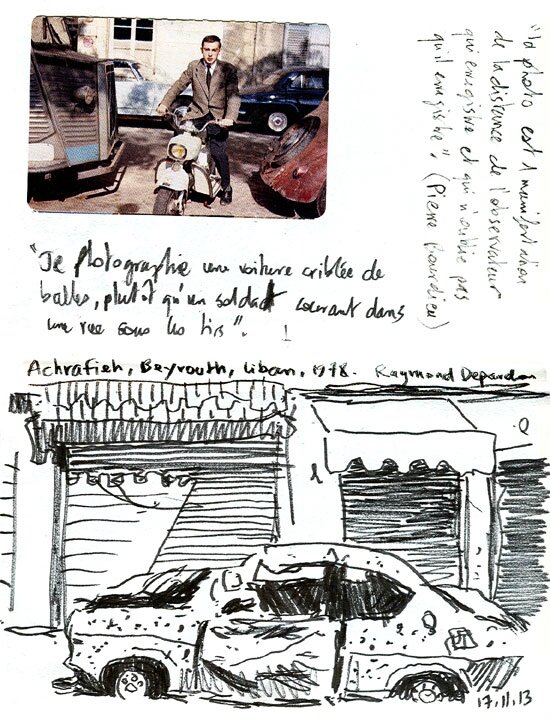 "la photo est 1 manifestation
de la distance de l'observateur
qui enregistre et qui n'oublie pas
qu'il enregistre". (Pierre Bourdieu)
"Je photographie une voiture criblée de
balles, plutôt qu'un soldat courant dans
une rue sous les tirs". !
Achrafieh, Beyrouth, Liban, 1978. Raymond Depardon
17.11.13